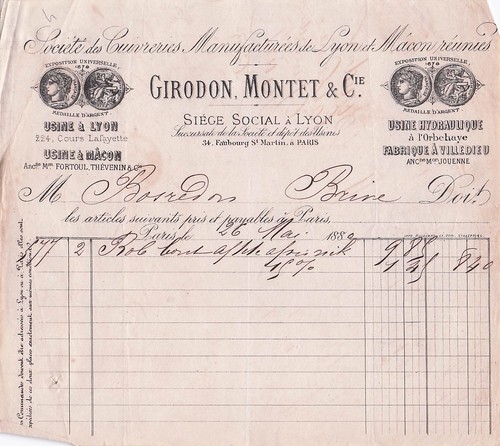 Société des Cuivreries Manufacturées de Lyon et Mâcon réunies
EXPOSITION UNIVERSELLE
1878
MÉDAILLE D'ARGENT
USINE À LYON
224, Cours Lafayette
USINE À MÂCON
Anc.nes M.ons FORTOUL, THÉVENIN & C.ie
GIRODON, MONTET & CIE
SIÈGE SOCIAL À LYON
Succursale de la Société et dépôt des Usines
34, Faubourg St Martin, à PARIS
EXPOSITION UNIVERSELLE
1878
MÉDAILLE D'ARGENT
USINE HYDRAULIQUE
à l'Orbehaye
FABRIQUE À VILLEDIEU
ANC.NE M.ON JOUENNE
M Bosredon Brive Doit
les articles suivants pris et payables à Paris.
Paris, le 26 Mai 188
2 Rob 9 88
15 % 8 40